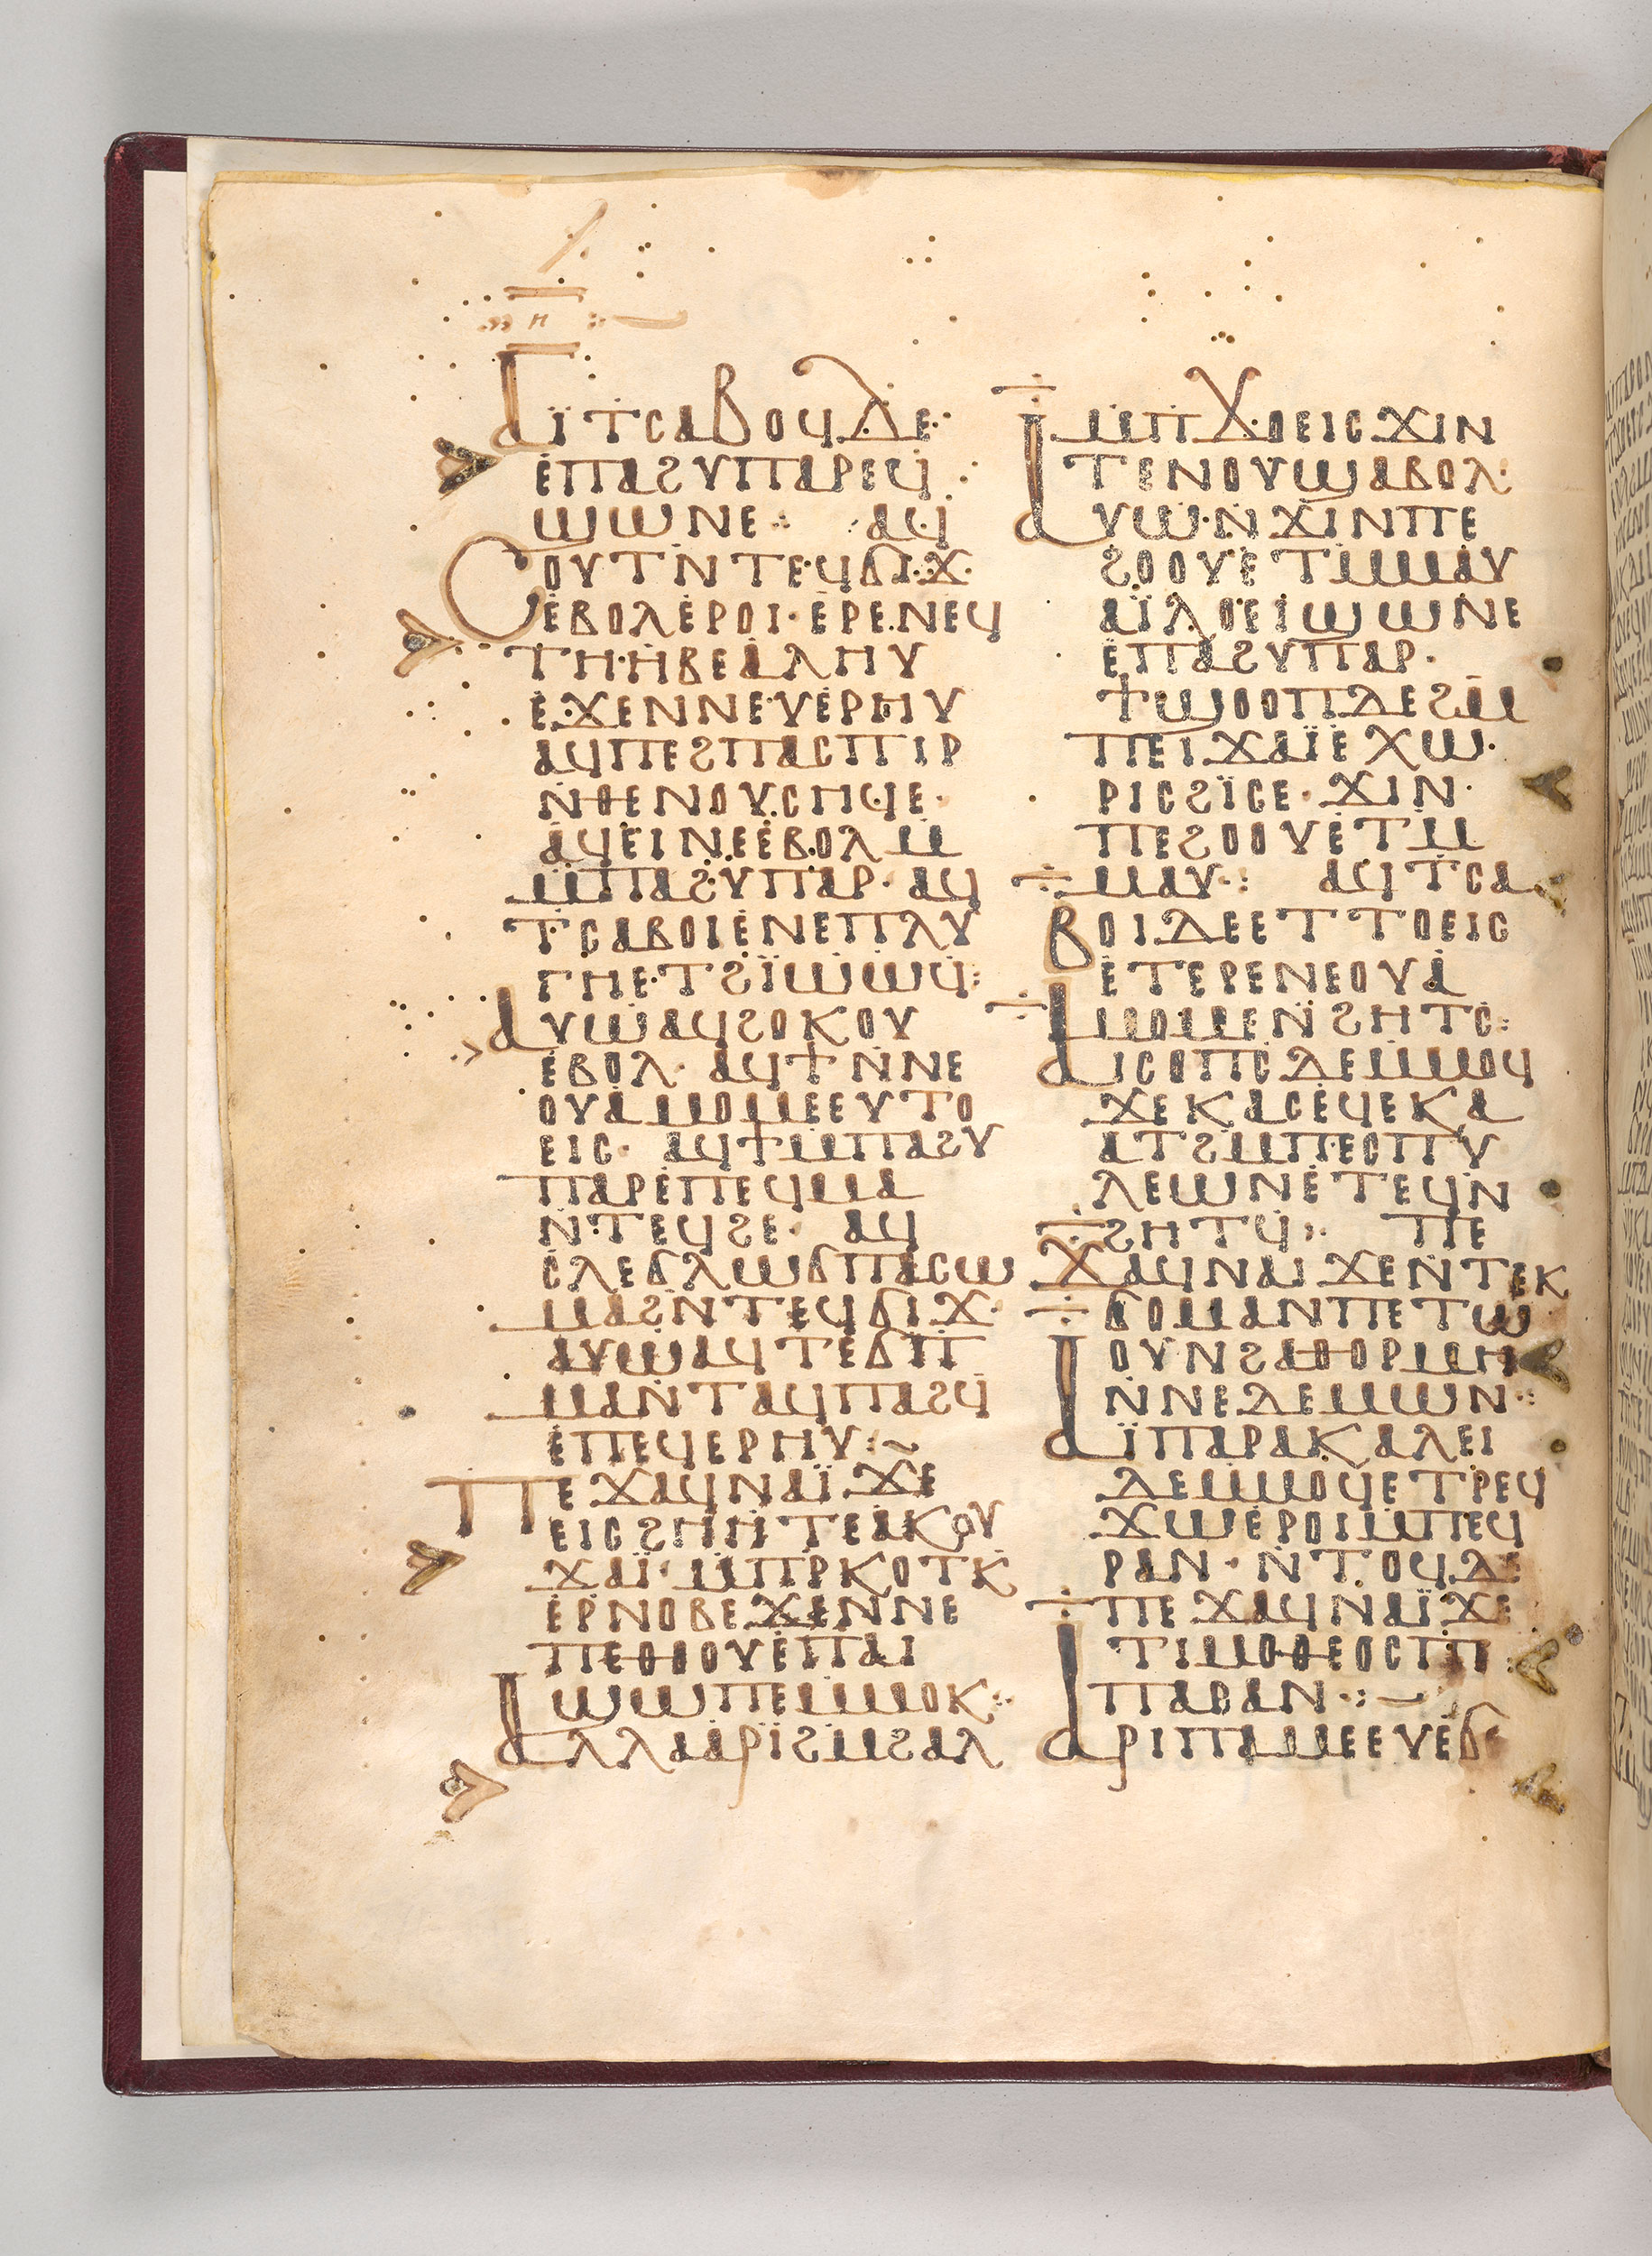 ⲏ
ⲁⲓ̈ⲧⲥⲁⲃⲟϥ·ⲇⲉ·
ⲉⲡⲁϩⲩⲡⲁⲣⲉϥ
ϣⲱⲛⲉ ⲁϥ
ⲥⲟⲩⲧⲛⲧⲉϥϭⲓϫ·
ⲉⲃⲟⲗⲉⲣⲟⲓ·ⲉⲣⲉⲛⲉϥ
ⲧⲏⲏⲃⲉⲁⲗⲏⲩ
ⲉϫⲉⲛⲛⲉⲩⲉⲣⲏⲩ
ⲁϥⲡⲉϩⲡⲁⲥⲡⲓⲣ
ⲛⲑⲉⲛⲟⲩⲥⲏϥⲉ·
ⲁϥⲉⲓⲛⲉⲉⲃⲟⲗⲙ
ⲙⲡⲁϩⲩⲡⲁⲣ·ⲁϥ
ⲧⲥⲁⲃⲟⲓⲉⲛⲉⲡⲗⲩ
ⲅⲏⲉⲧϩⲓ̈ⲱⲱϥ:
ⲁⲩⲱⲁϥϩⲟⲕⲟⲩ
ⲉⲃⲟⲗ·ⲁϥϯⲛⲛⲉ
ⲟⲩⲁⲙⲟⲙⲉⲉⲩⲧⲟ
ⲉⲓⲥ·ⲁϥϯⲙⲡⲁϩⲩ
ⲡⲁⲣⲉⲡⲉϥⲙⲁ
ⲛⲧⲉϥϩⲉ· ⲁϥ
ⲥⲗⲉϭⲗⲱϭⲡⲁⲥⲱ
ⲙⲁϩⲛⲧⲉϥϭⲓϫ·
ⲁⲩⲱⲁϥⲧⲉϭⲡ
ⲙⲁⲛⲧⲁϥⲡⲁϩϥ
ⲉⲡⲉϥⲉⲣⲏⲩ:~
ⲡⲉϫⲁϥⲛⲁⲓ̈ϫⲉ
ⲉⲓⲥϩⲏⲏⲧⲉⲁⲕⲟⲩ
ϫⲁⲓ̈·ⲙⲡⲣⲕⲟⲧⲕ
ⲉⲣⲛⲟⲃⲉϫⲉⲛⲛⲉ
ⲡⲉⲑⲟⲟⲩⲉⲡⲁⲓ
ϣⲱⲡⲉⲙⲙⲟⲕ
ⲁⲗⲗⲁⲁⲣⲓ̈ϩⲙϩⲁⲗ
ⲙⲡϫⲟⲉⲓⲥϫⲓⲛ
ⲧⲉⲛⲟⲩϣⲁⲃⲟⲗ·
ⲁⲩⲱⲛϫⲓⲛⲡⲉ
ϩⲟⲟⲩⲉⲧⲙⲙⲁⲩ
ⲁⲓ̈ⲗⲟⲉⲓϣⲱⲛⲉ
ⲉⲡⲁϩⲩⲡⲁⲣ·
ϯϣⲟⲟⲡⲇⲉϩⲙ
ⲡⲉⲓϫⲁⲓ̈ⲉⲭⲱ·
ⲣⲓⲥϩⲓ̈ⲥⲉ·ϫⲓⲛ·
ⲡⲉϩⲟⲟⲩⲉⲧⲙ
ⲙⲁⲩ: ⲁϥⲧⲥⲁ
ⲃⲟⲓⲇⲉⲉⲧⲧⲟⲉⲓⲥ
ⲉⲧⲉⲣⲉⲛⲉⲟⲩⲁ
ⲙⲟⲙⲉⲛϩⲏⲧⲥ:
ⲁⲓⲥⲟⲡⲥⲇⲉⲙⲙⲟϥ
ϫⲉⲕⲁⲥⲉϥⲉⲕⲁ
ⲁⲧϩⲙⲡⲉⲥⲡⲩ
ⲗⲉⲱⲛⲉⲧⲉϥⲛ
ϩⲏⲧϥ: ⲡⲉ
ϫⲁϥⲛⲁⲓϫⲉⲛⲧⲉⲕ
ϭⲟⲙⲁⲛⲡⲉⲧⲱ
ⲟⲩⲛϩⲁⲑⲟⲣⲙⲏ
ⲛⲛⲉⲇⲉⲙⲱⲛ:
ⲁⲓ̈ⲡⲁⲣⲁⲕⲁⲗⲉⲓ
ⲇⲉⲙⲙⲟϥⲉⲧⲣⲉϥ
ϫⲱⲉⲣⲟⲓⲙⲡⲉϥ
ⲣⲁⲛ·ⲛⲧⲟϥⲇⲉ
ⲡⲉϫⲁϥⲛⲁⲓ̈ϫⲉ
ⲧⲓⲙⲟⲑⲉⲟⲥⲡ
ⲡⲁⲣⲁⲛ·:
ⲁⲣⲓⲡⲁⲙⲉⲉⲩⲉϭⲉ